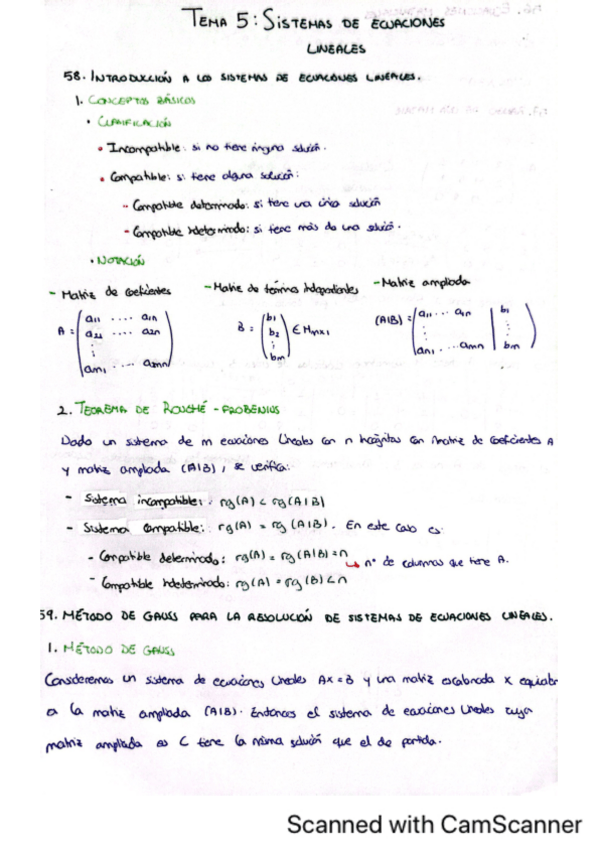 TEMA 5: SISTEMAS DE ECUACIONES
LINEALES
58. INTRODUCCIÓN A LOS SISTEMAS DE ECUACIONES LINEALES.
1. CONCEPTOS BÁSICOS
• CLASIFICACIÓN
• Incompatible: si no tiene ninguna solución.
• Compatible: si tiene alguna solución:
- Compatible determinado: si tiene una única solución
- Compatible indeterminado: si tiene más de una solución.
• NOTACIÓN
- Matriz de coeficientes - Matriz de términos independientes - Matriz ampliada
A = (a11 .... a1n
a21 .... a2n
⋮
am1 .... amn)
B = (b1
b2
⋮
bm) ∈ Mmx1
(A|B) = (a11 ... a1n | b1
⋮ ⋮
am1 ... amn | bm)
2. TEOREMA DE ROUCHÉ - FROBENIUS
Dado un sistema de m ecuaciones lineales con n incógnitas con matriz de coeficientes A
y matriz ampliada (A|B), se verifica:
- Sistema incompatible: rg(A) < rg(A|B)
- Sistema compatible: rg(A) = rg(A|B). En este caso es:
- Compatible determinado: rg(A) = rg(A|B) = n
↳ nº de columnas que tiene A.
- Compatible indeterminado: rg(A) = rg(B) < n
59. MÉTODO DE GAUSS PARA LA RESOLUCIÓN DE SISTEMAS DE ECUACIONES LINEALES.
1. MÉTODO DE GAUSS
Consideremos un sistema de ecuaciones lineales Ax = B y una matriz escalonada x equivalen
a la matriz ampliada (A|B). Entonces el sistema de ecuaciones lineales cuya
matriz ampliada es C tiene la misma solución que el de partida.
Scanned with CamScanner